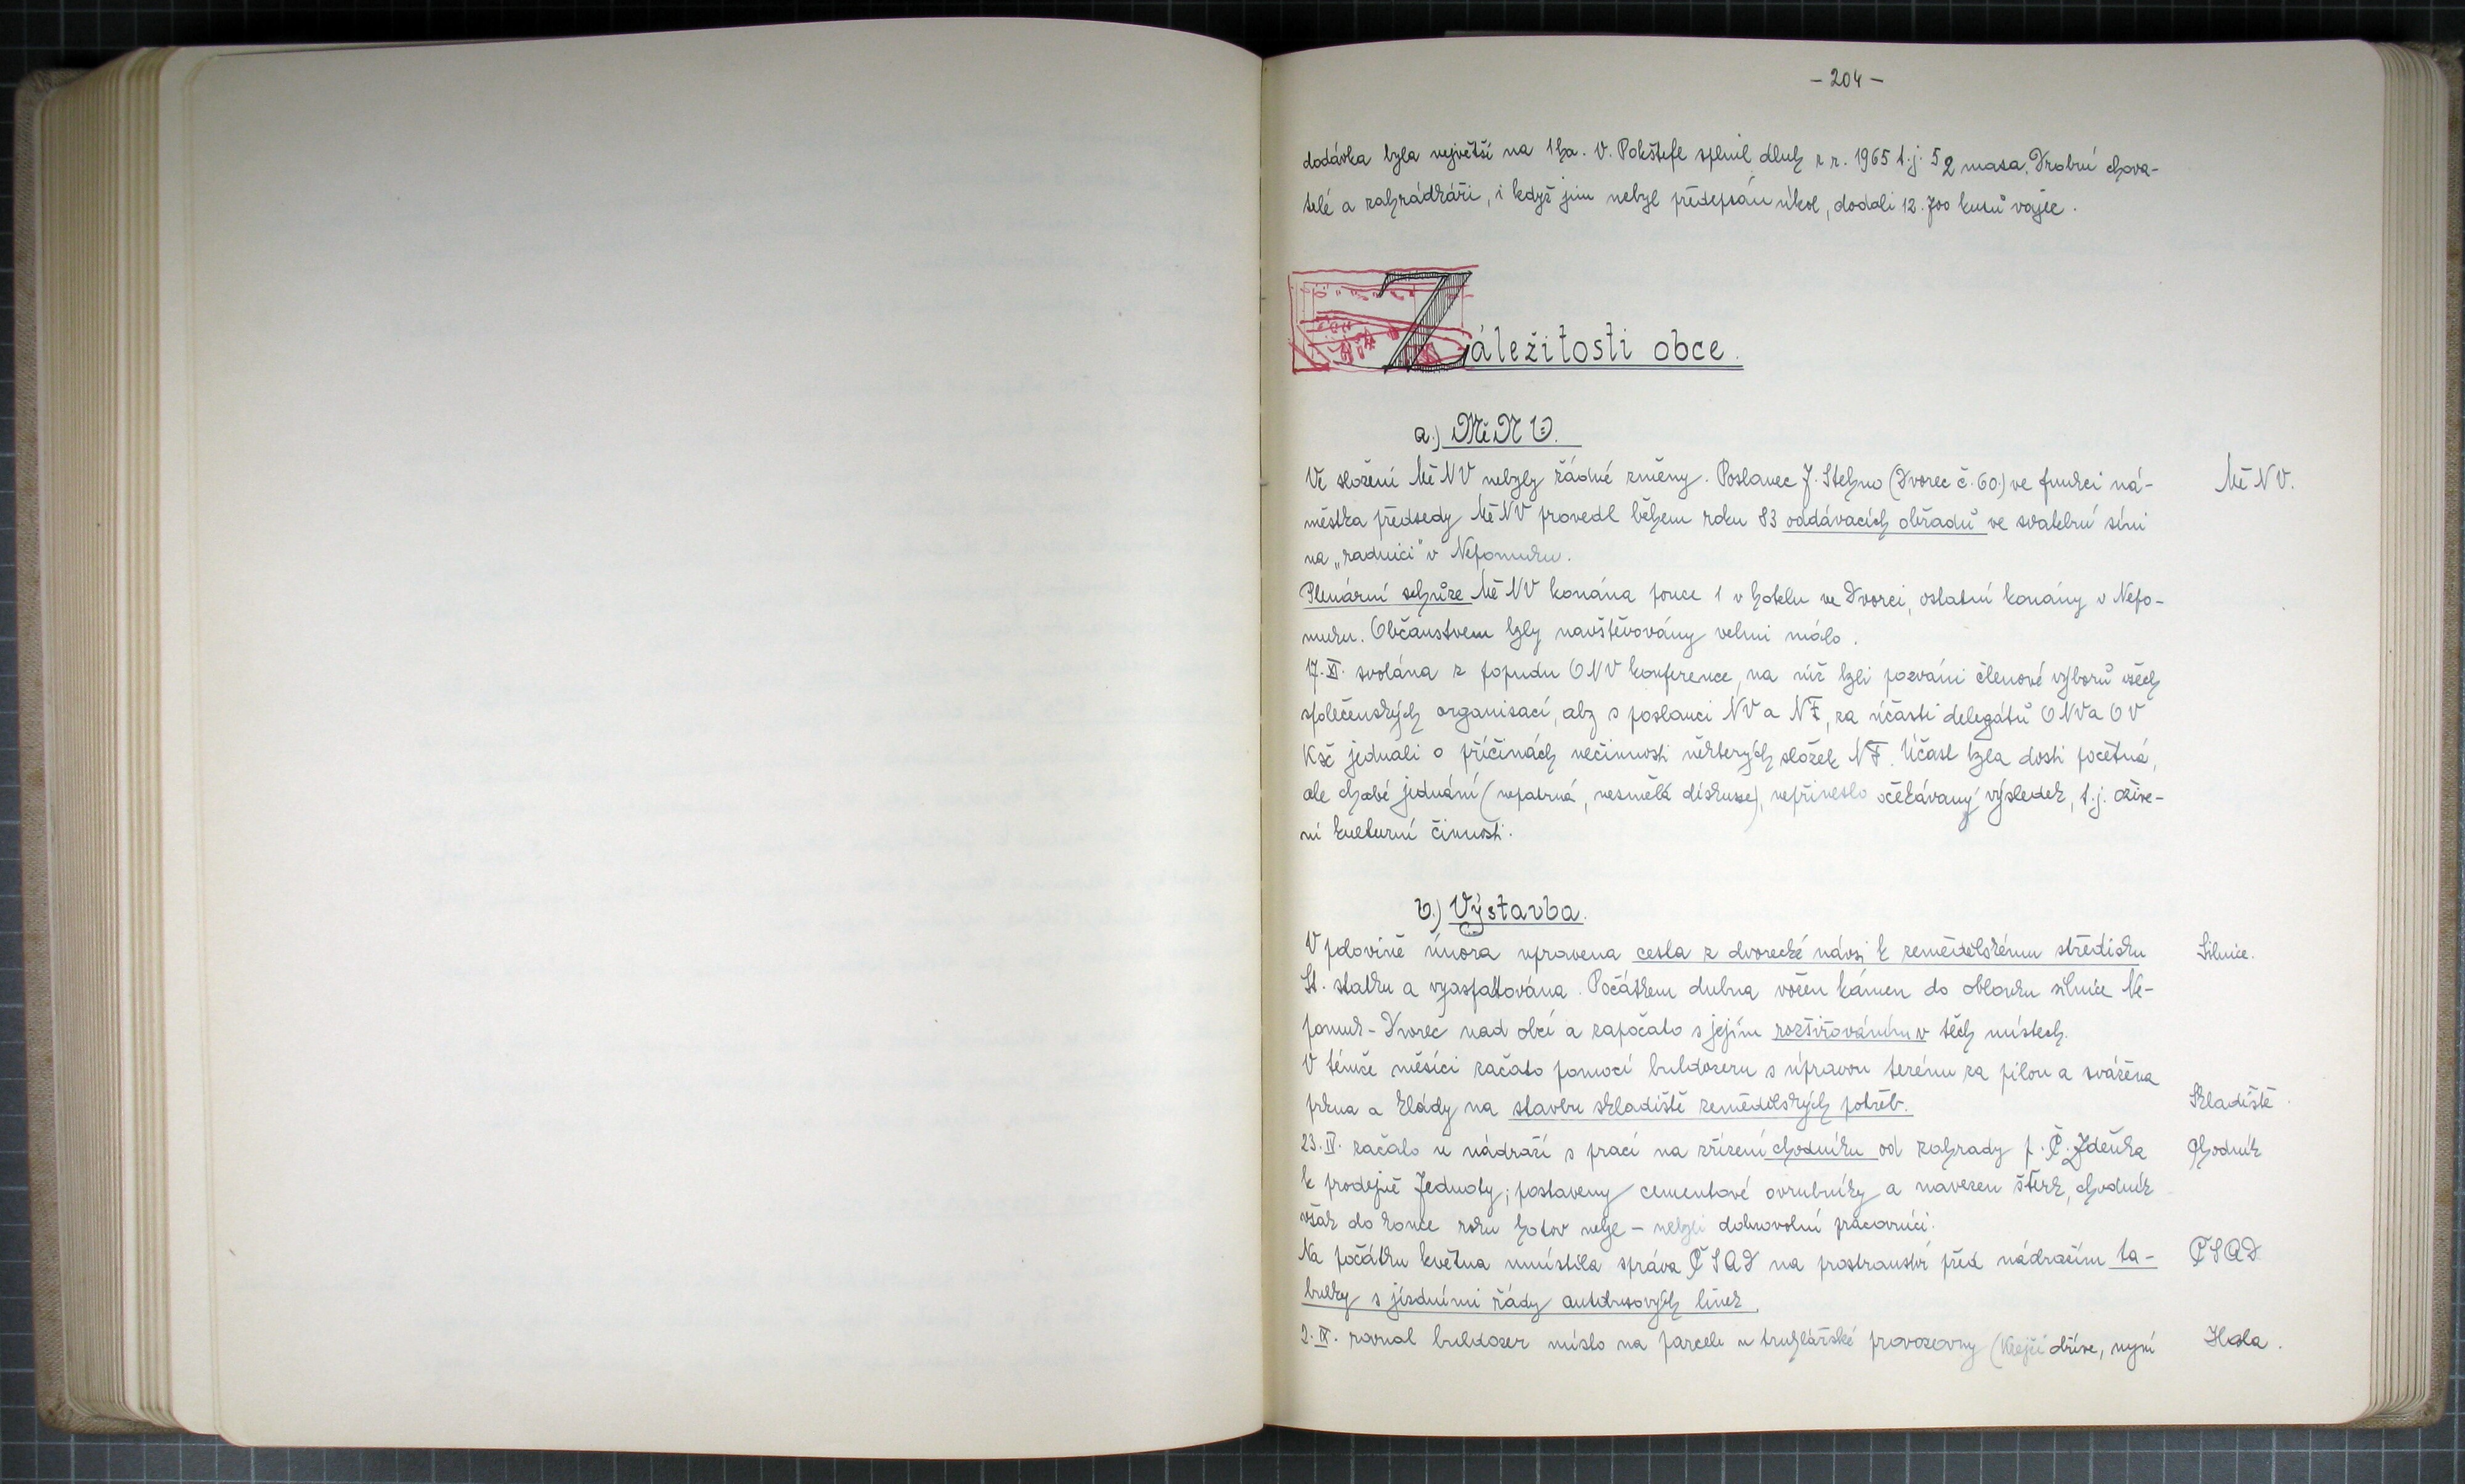 - 204 -
dodávka byla největší na 1 ha. V. Pokštefl splnil dluh z r. 1965 t.j. 5 q masa. Drobní chova-
telé a zahrádkáři, i když jim nebyl předepsán úkol, dodali 12.700 kusů vajec.
Záležitosti obce.
a.) MěNV.
Ve složení MěNV nebyly žádné změny. Poslanec J. Stehno (Dvorec č. 60.) ve funkci ná-
MěNV.
městka předsedy MěNV provedl během roku 83 oddávacích obřadů ve svatební síni
na „radnici" v Nepomuku.
Plenární schůze MěNV konána pouze 1 v hotelu ve Dvorci, ostatní konány v Nepo-
muku. Občanstvem byly navštěvovány velmi málo.
17.XI. svolána z popudu ONV konference, na níž byli pozváni členové výborů všech
společenských organisací, aby s poslanci NV a NF, za účasti delegátů ONV a OV
KSČ jednali o příčinách nečinnosti některých složek NF. Účast byla dosti početná,
ale chabé jednání (nepatrná, nesmělá diskuse), nepřineslo očekávaný výsledek, t.j. ožive-
ní kulturní činnosti.
b.) Výstavba.
V polovině února upravena cesta z dvorecké návsi k zemědělskému středisku
Silnice.
St. statku a vyasfaltována. Počátkem dubna vožen kámen do oblouku silnice Ne-
pomuk - Dvorec nad obcí a započato s jejím rozšiřováním v těch místech.
V témže měsíci začato pomocí buldozeru s úpravou terénu za pilou a svážena
prkna a klády na stavbu skladiště zemědělských potřeb.
Skladiště.
23.IV. začalo u nádraží s prací na zřízení chodníku od zahrady p. Č. Zdeňka
Chodník
k prodejně Jednoty; postaveny cementové ovrubníky a navezen štěrk, chodník
však do konce roku hotov nebyl - nebyli dobrovolní pracovníci.
Na počátku května umístila správa ČSAD na prostranství před nádražím ta-
ČSAD
bulky s jízdními řády autobusových linek.
2.IX. rovnal buldozer místo na parcele u truhlářské provozovny (Krejčí dříve, nyní